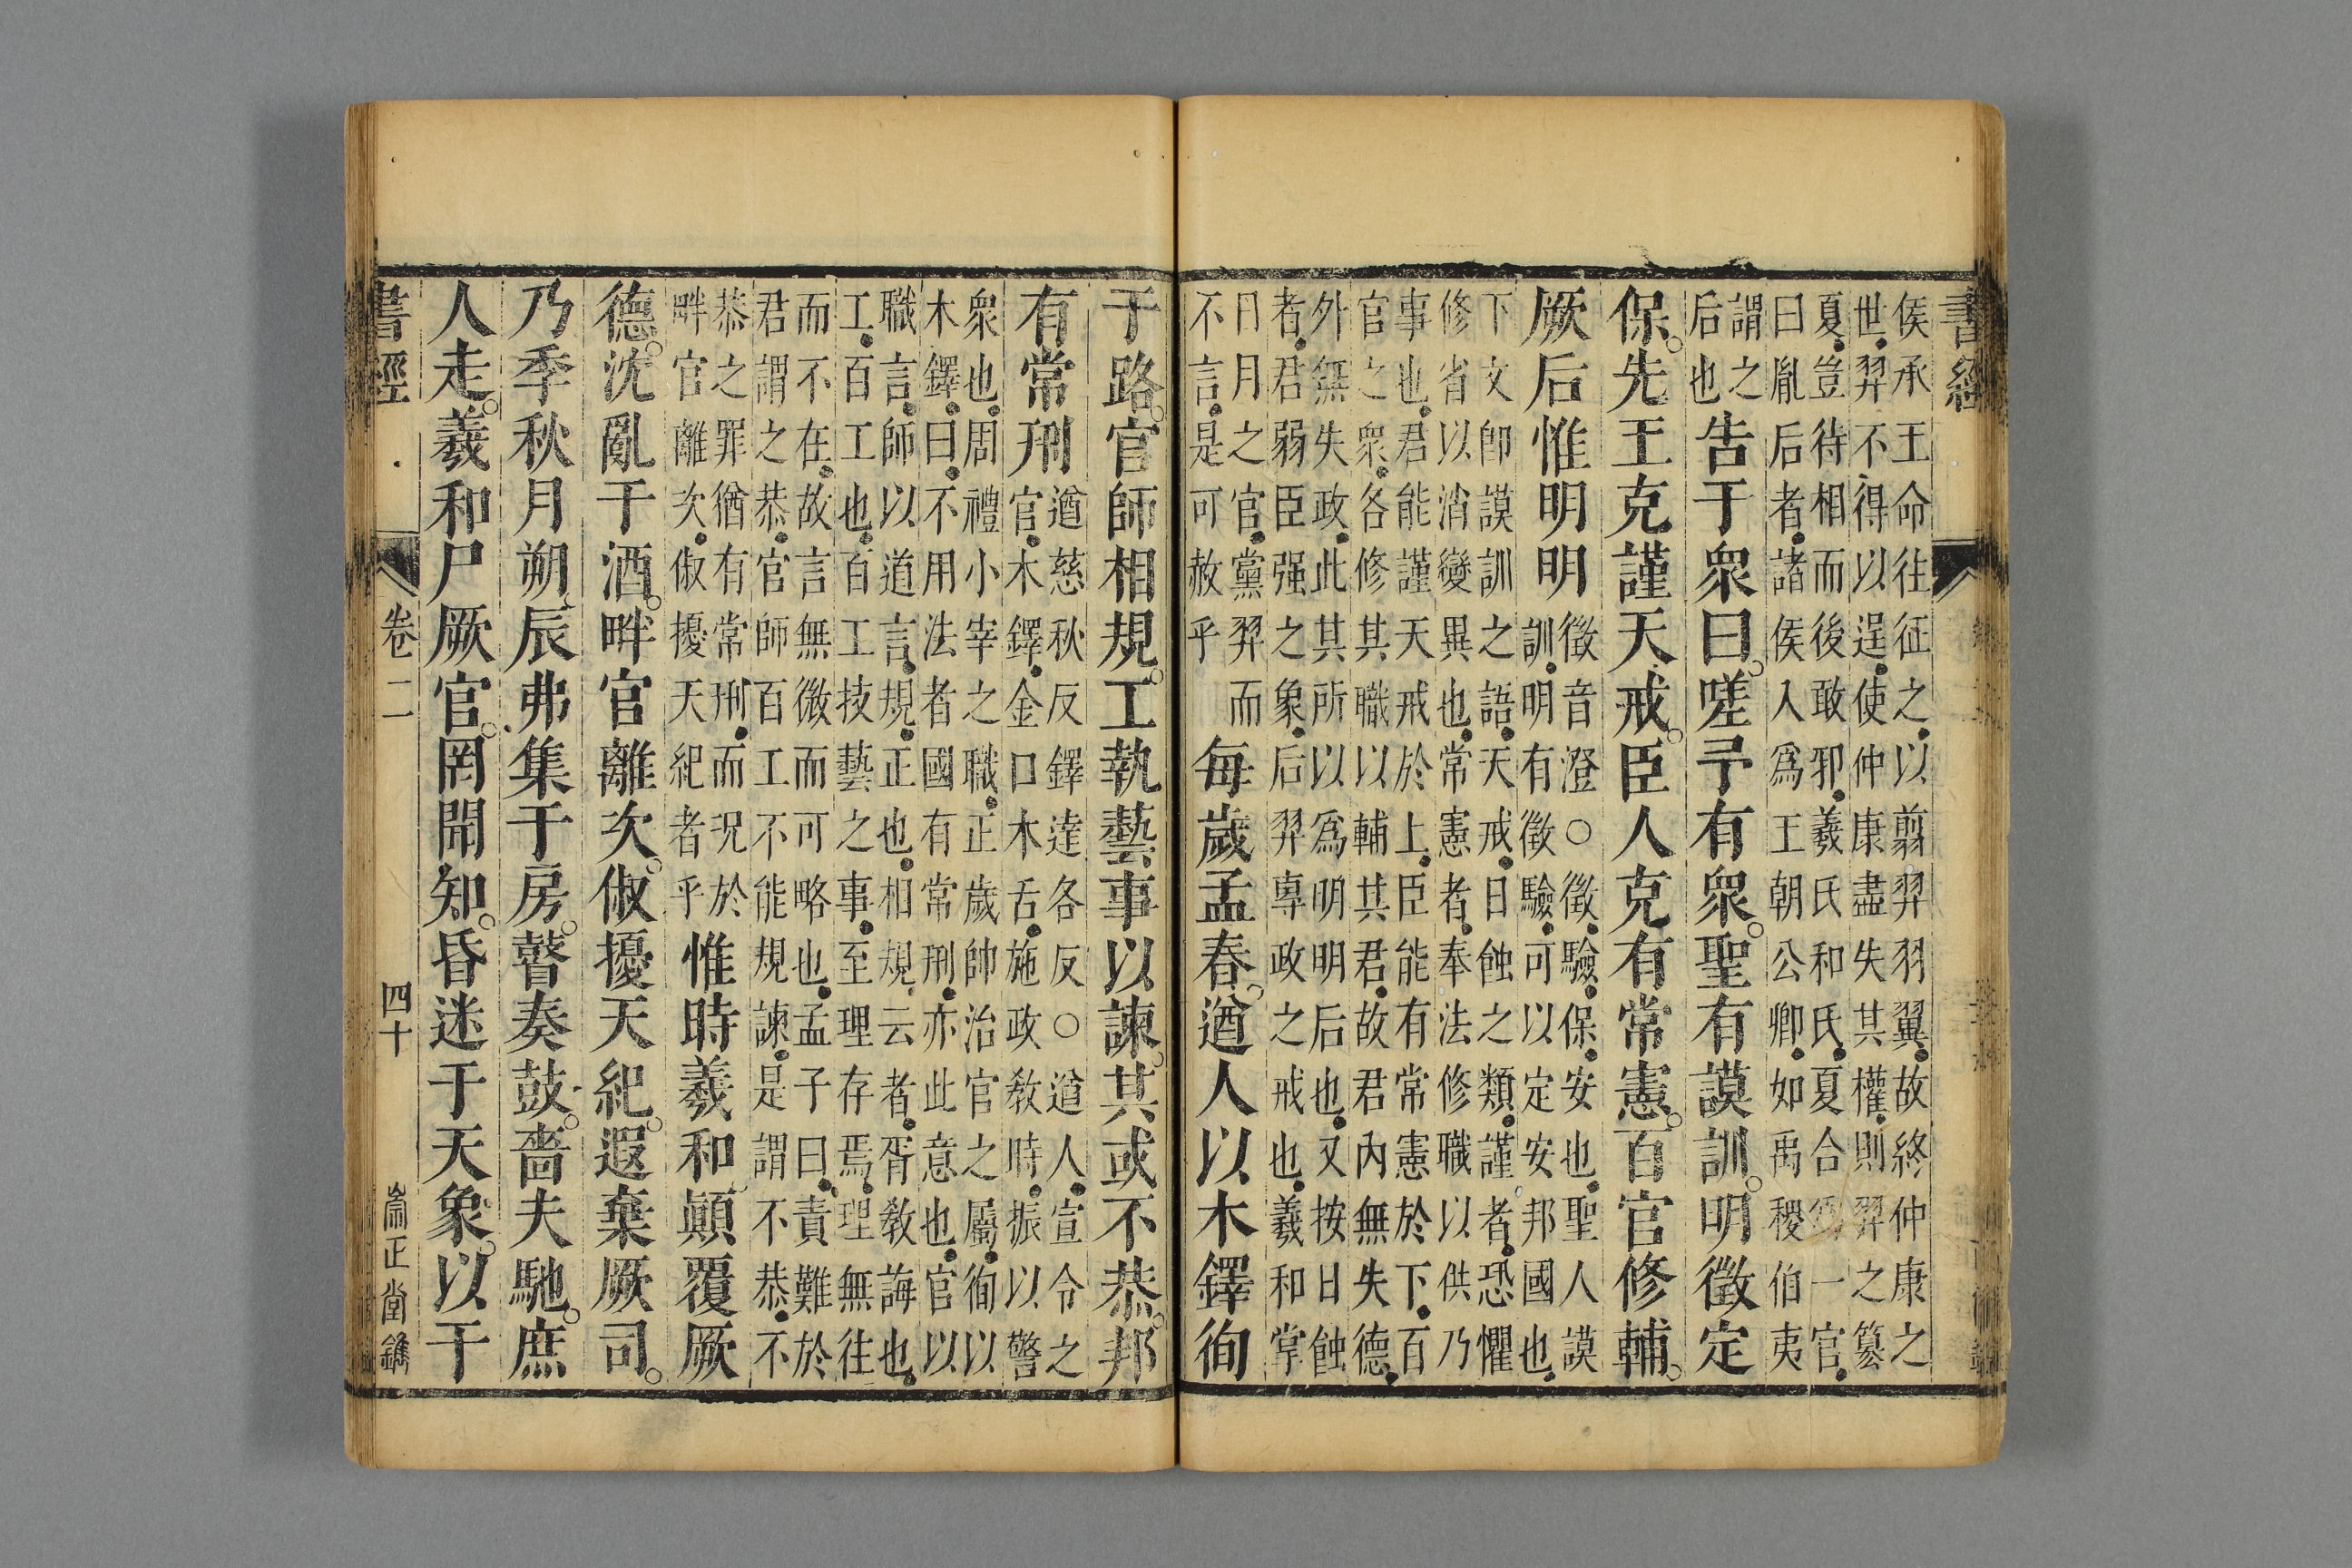 書經
侯承王命往征之以翦羿羽翼故終仲康之
世羿不得以逞使仲康盡失其權則羿之篡
夏豈待相而後敢邪羲氏和氏夏合爲一官
曰胤后者諸侯入爲王朝公卿如禹稷伯夷
謂之
后也
告于衆曰嗟予有衆聖有謨訓明徵定
保先王克謹天戒臣人克有常憲百官修輔
厥后惟明明
徵音澄○徵驗保安也聖人謨
訓明有徵驗可以定安邦國也
下文卽謨訓之語天戒日蝕之類謹者恐懼
修省以消變異也常憲者奉法修職以供乃
事也君能謹天戒於上臣能有常憲於下百
官之衆各修其職以輔其君故君內無失德
外無失政此其所以爲明明后也又按日蝕
者君弱臣强之象后羿專政之戒也羲和掌
日月之官黨羿而
不言是可赦乎
每歲孟春遒人以木鐸徇
于路官師相規工執藝事以諫其或不恭邦
有常刑
遒慈秋反鐸達各反○遒人宣令之
官木鐸金口木舌施政敎時振以警
衆也周禮小宰之職正歲帥治官之屬徇以
木鐸曰不用法者國有常刑亦此意也官以
職言師以道言規正也相規云者胥敎誨也
工百工也百工技藝之事至理存焉理無往
而不在故言無微而可略也孟子曰責難於
君謂之恭官師百工不能規諫是謂不恭不
恭之罪猶有常刑而況於
畔官離次俶擾天紀者乎
惟時羲和顚覆厥
德沈亂于酒畔官離次俶擾天紀遐棄厥司
乃季秋月朔辰弗集于房瞽奏鼓嗇夫馳庶
人走羲和尸厥官罔聞知昏迷于天象以干
書經 卷二 四十 崇正堂鐫